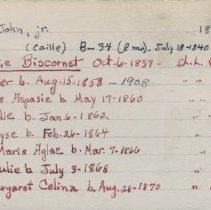 John, jr. 18
(Caille) B-34 (8 mo)-July 18-1840
ie Biscornet Oct-6-1857- st.L.
er b. Aug-15-1858 - 1908
e Aspasie b. May 17-1860 " "
lie b. Jan-6-1862 "
yse b. Feb-26-1864 " "
Maria Aglae b. Mar-7-1866 " "
ulie b. July 3-1868 " "
argaret Celina b. Aug-28-1870 " "